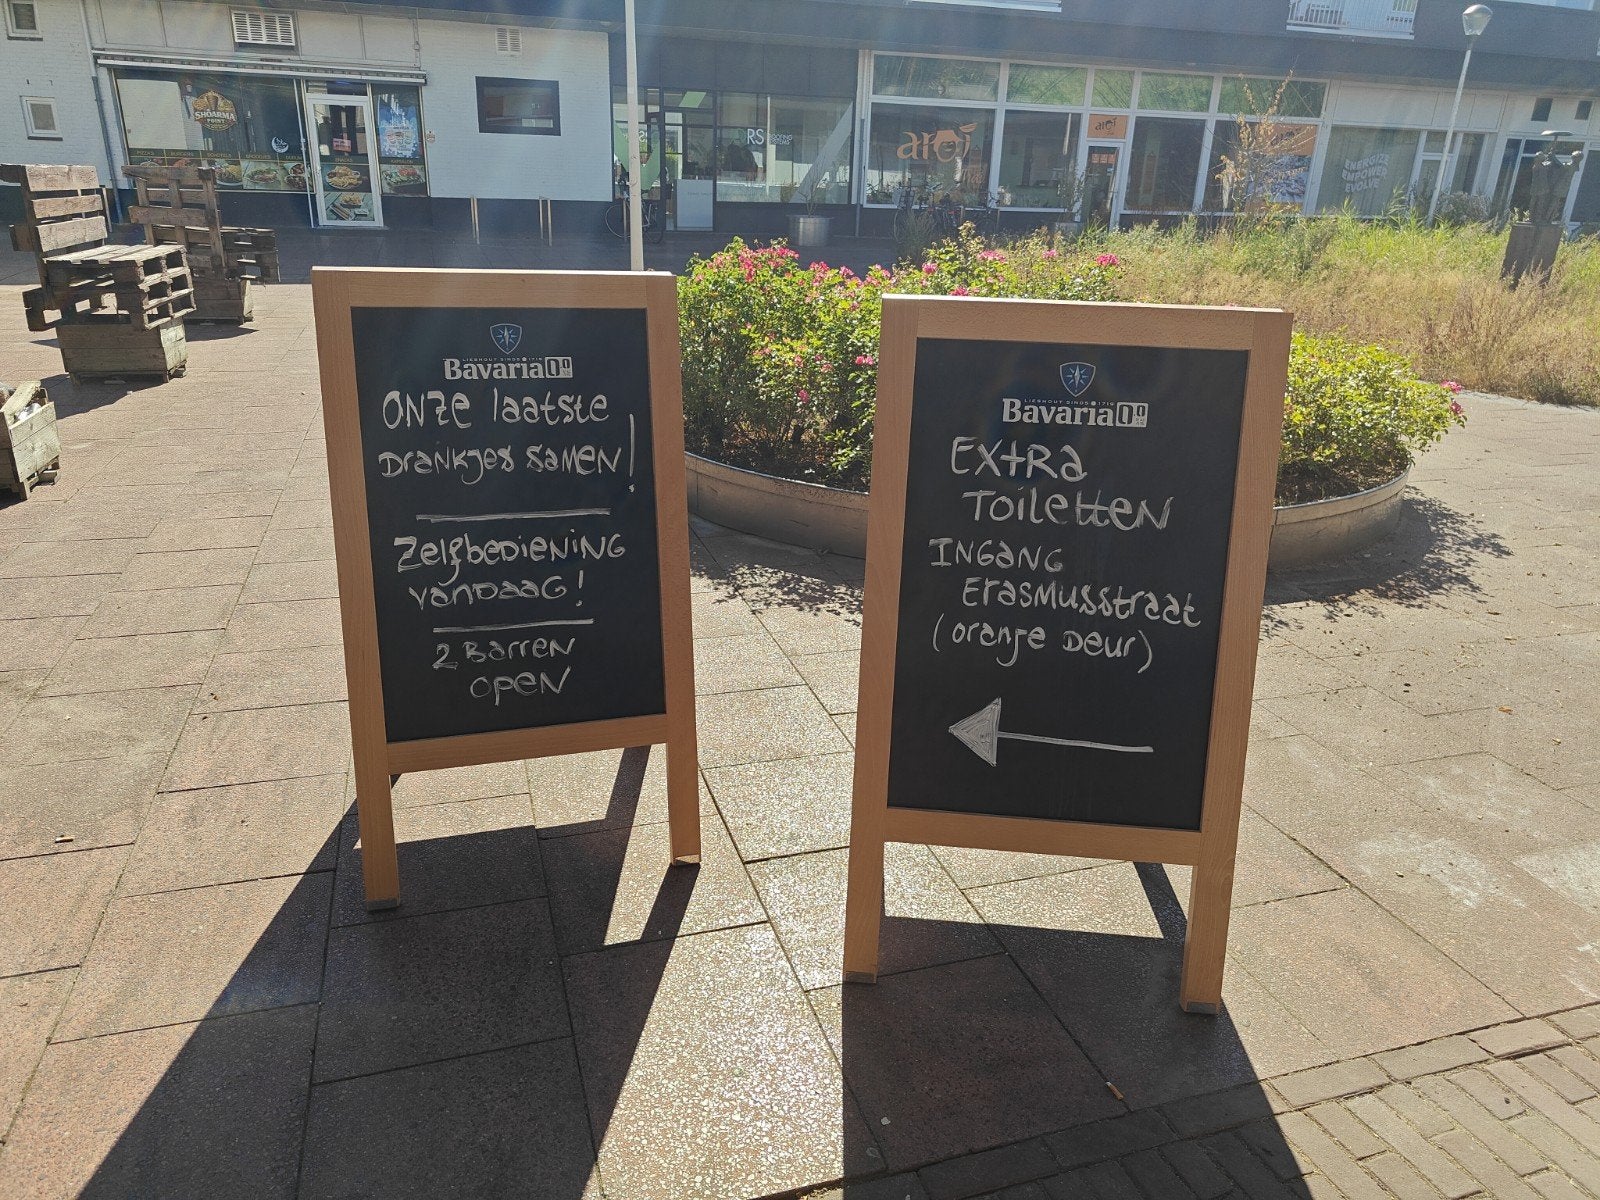 SHOARMA
POINT
RS
aroi
aroi
ENERGIZE
EMPOWER
EVOLVE
LIESHOUT SINDS 1719
Bavaria 0.0
ONZE laatste
DRANKJES SAMEN!
Zelfbediening
vandaag!
2 Barren
open
LIESHOUT SINDS 1719
Bavaria 0.0
EXTRA
Toiletten
INGANG
Erasmusstraat
(oranje deur)